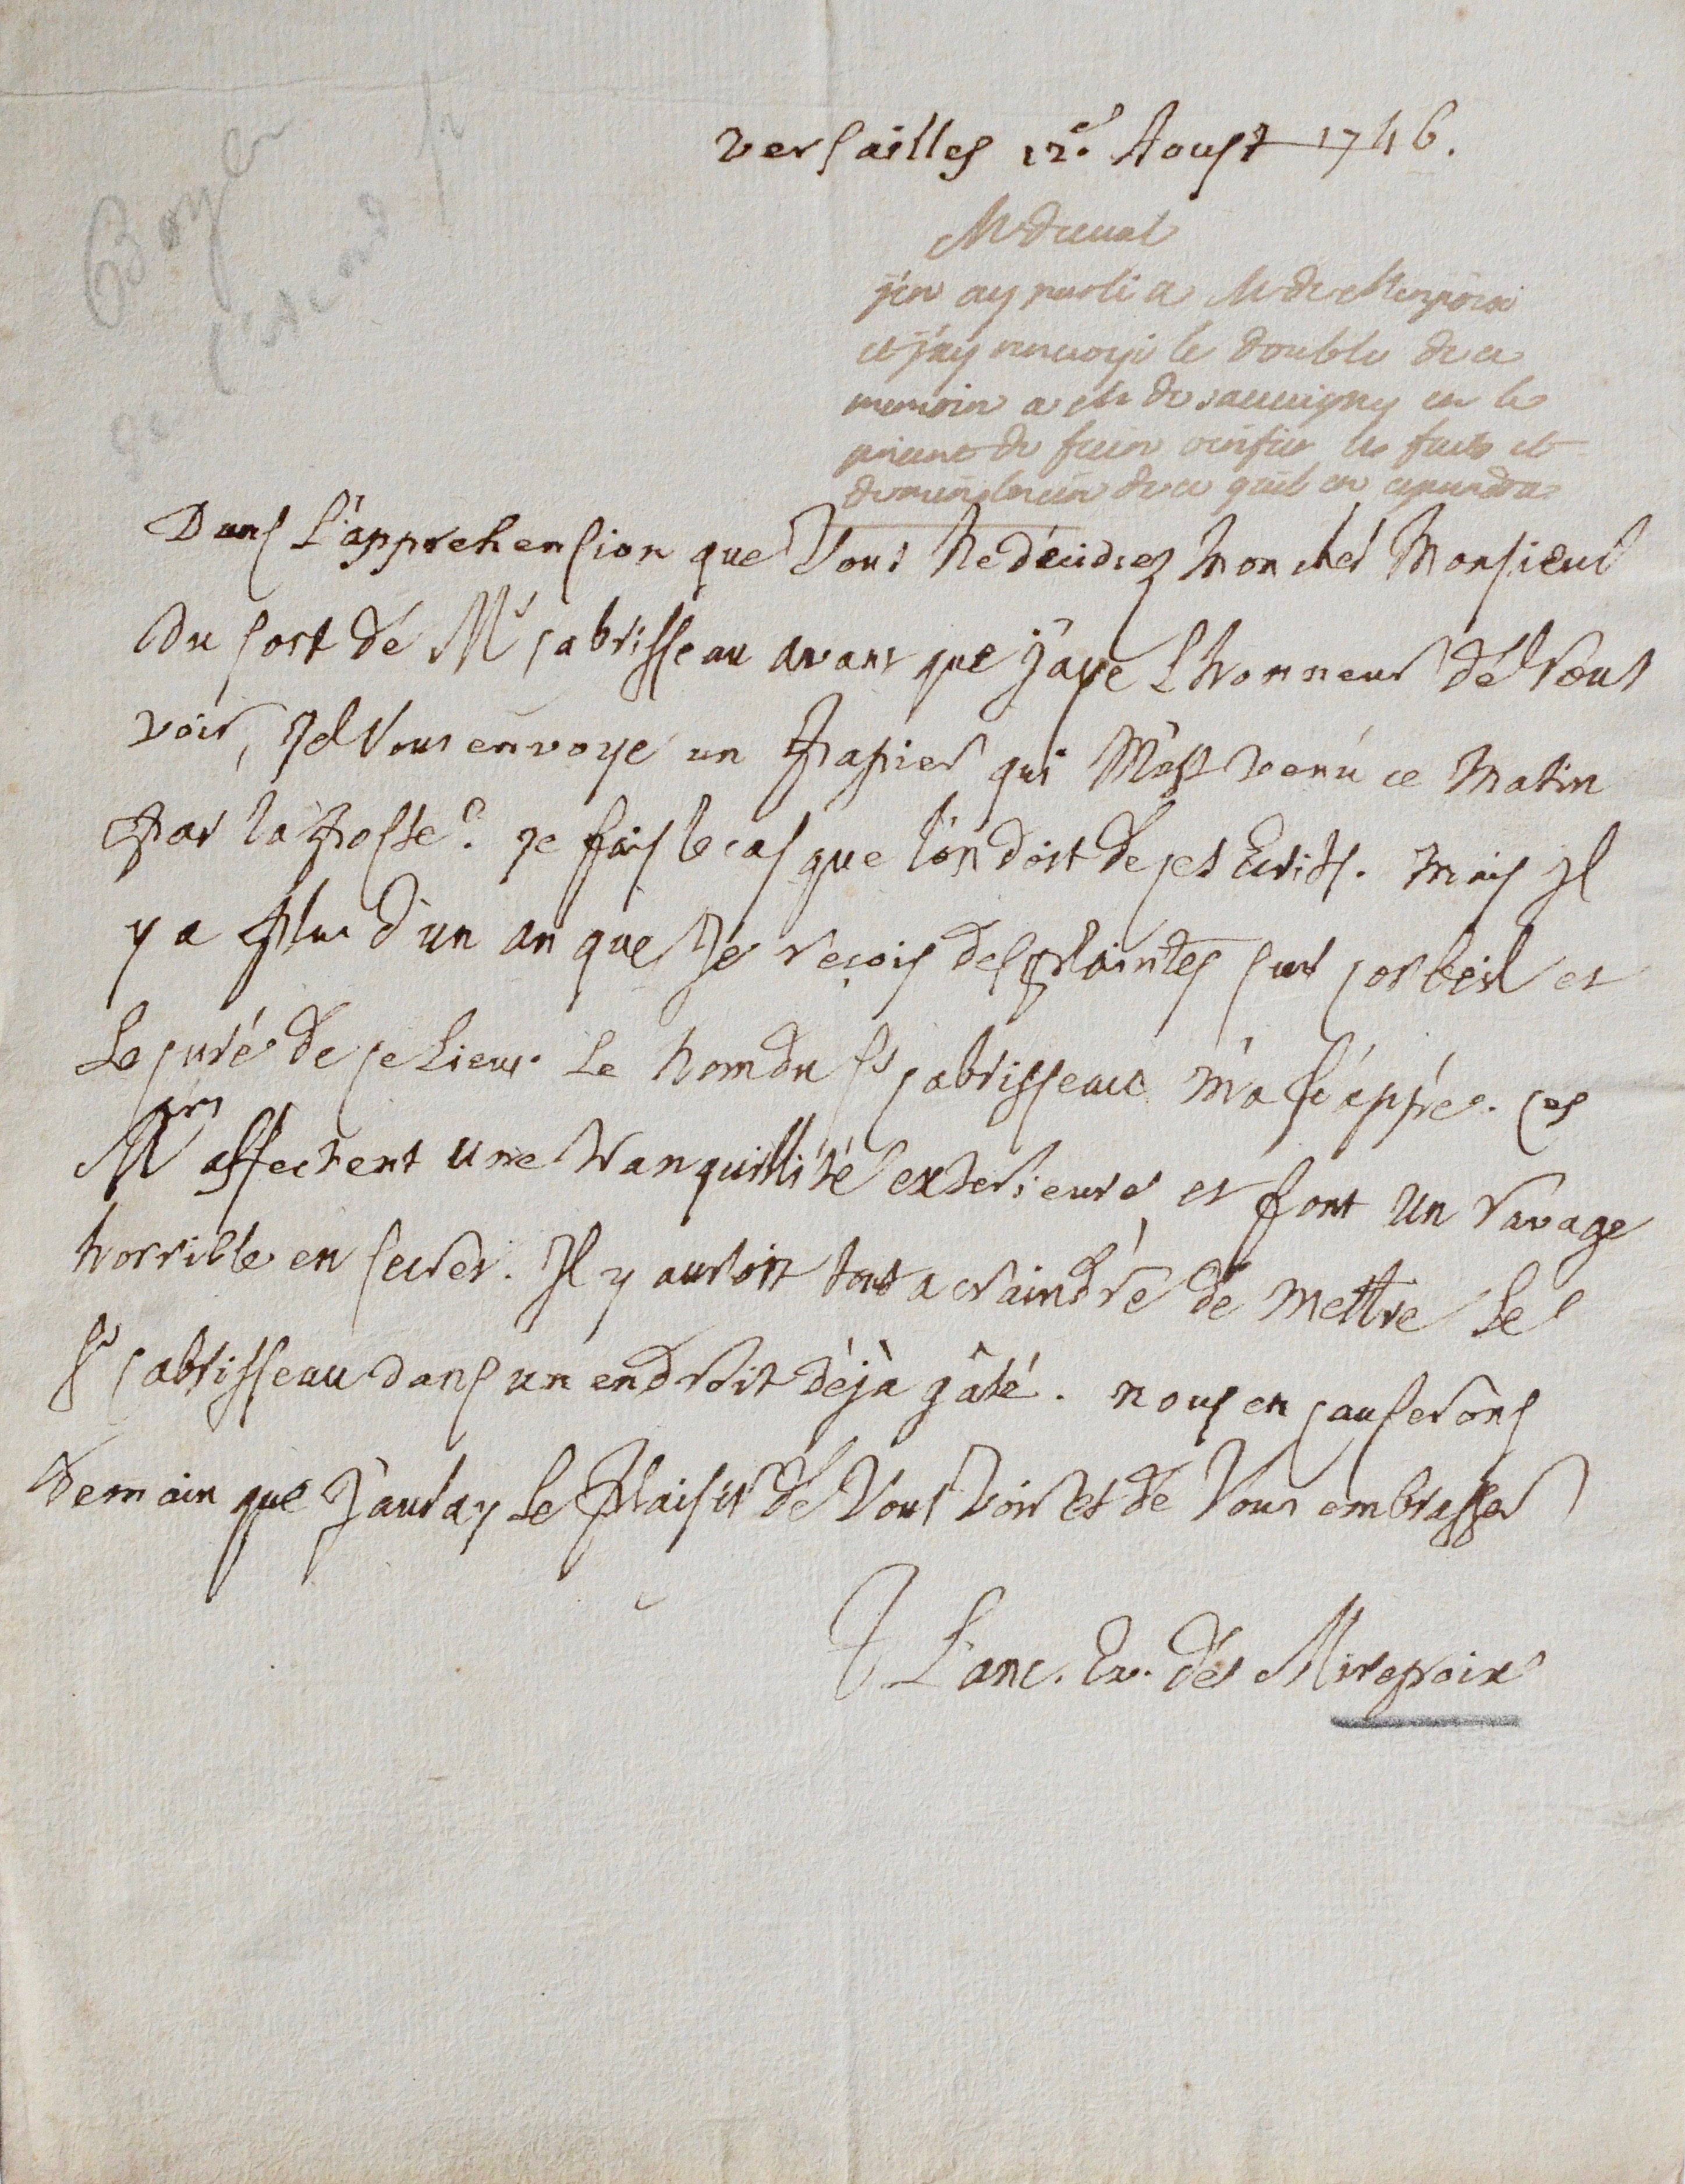 Versailles 12.e Aoust 1746.
Boyer
Mr duval
j'en ay parlé a Mr de Mirepoix
et j'ay renvoyé le double de ce
memoire a Mr de sauvigny en le
priant de faire verifier les faits et
de me rendre de ce qu'il en aprendra
Dans l'apprehension que Vous ne décidiez mon cher Monsieur
du sort de Mr cabrisseau avant que j'aye L'honneur de Vous
voir, Je Vous envoye un Papier qui M'est venu ce Matin
Par la Poste. je fais le cas que l'on doit de ces Ecrits. mais Il
y a Plus d'un an que Je reçois des Plaintes sur corbeil et
Le curé de ce Lieu. Le nom du Sr cabrisseau m'a frappé. ces
Mrs affectent une tranquillité exterieure et font un ravage
horrible en secret. Il y auroit tout a craindre de mettre Le
Sr cabrisseau dans un endroit déjà gâté. nous en causerons
demain que J'auray Le Plaisir de Vous voir et de Vous embrasser
L'anc. Ev. de Mirepoix